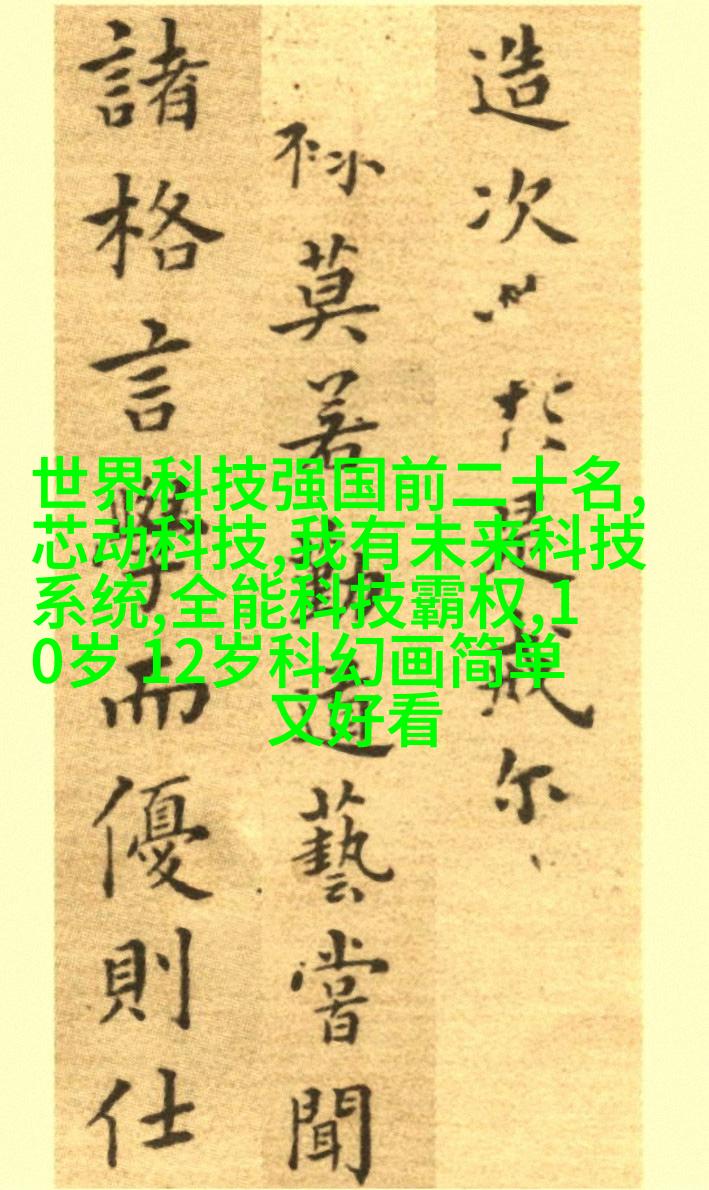 造次於是戒尔
莫若道藝嘗聞
諸格言學而優則仕
世界科技强国前二十名,
芯动科技,我有未来科技
系统,全能科技霸权,1
0岁 12岁科幻画简单
又好看